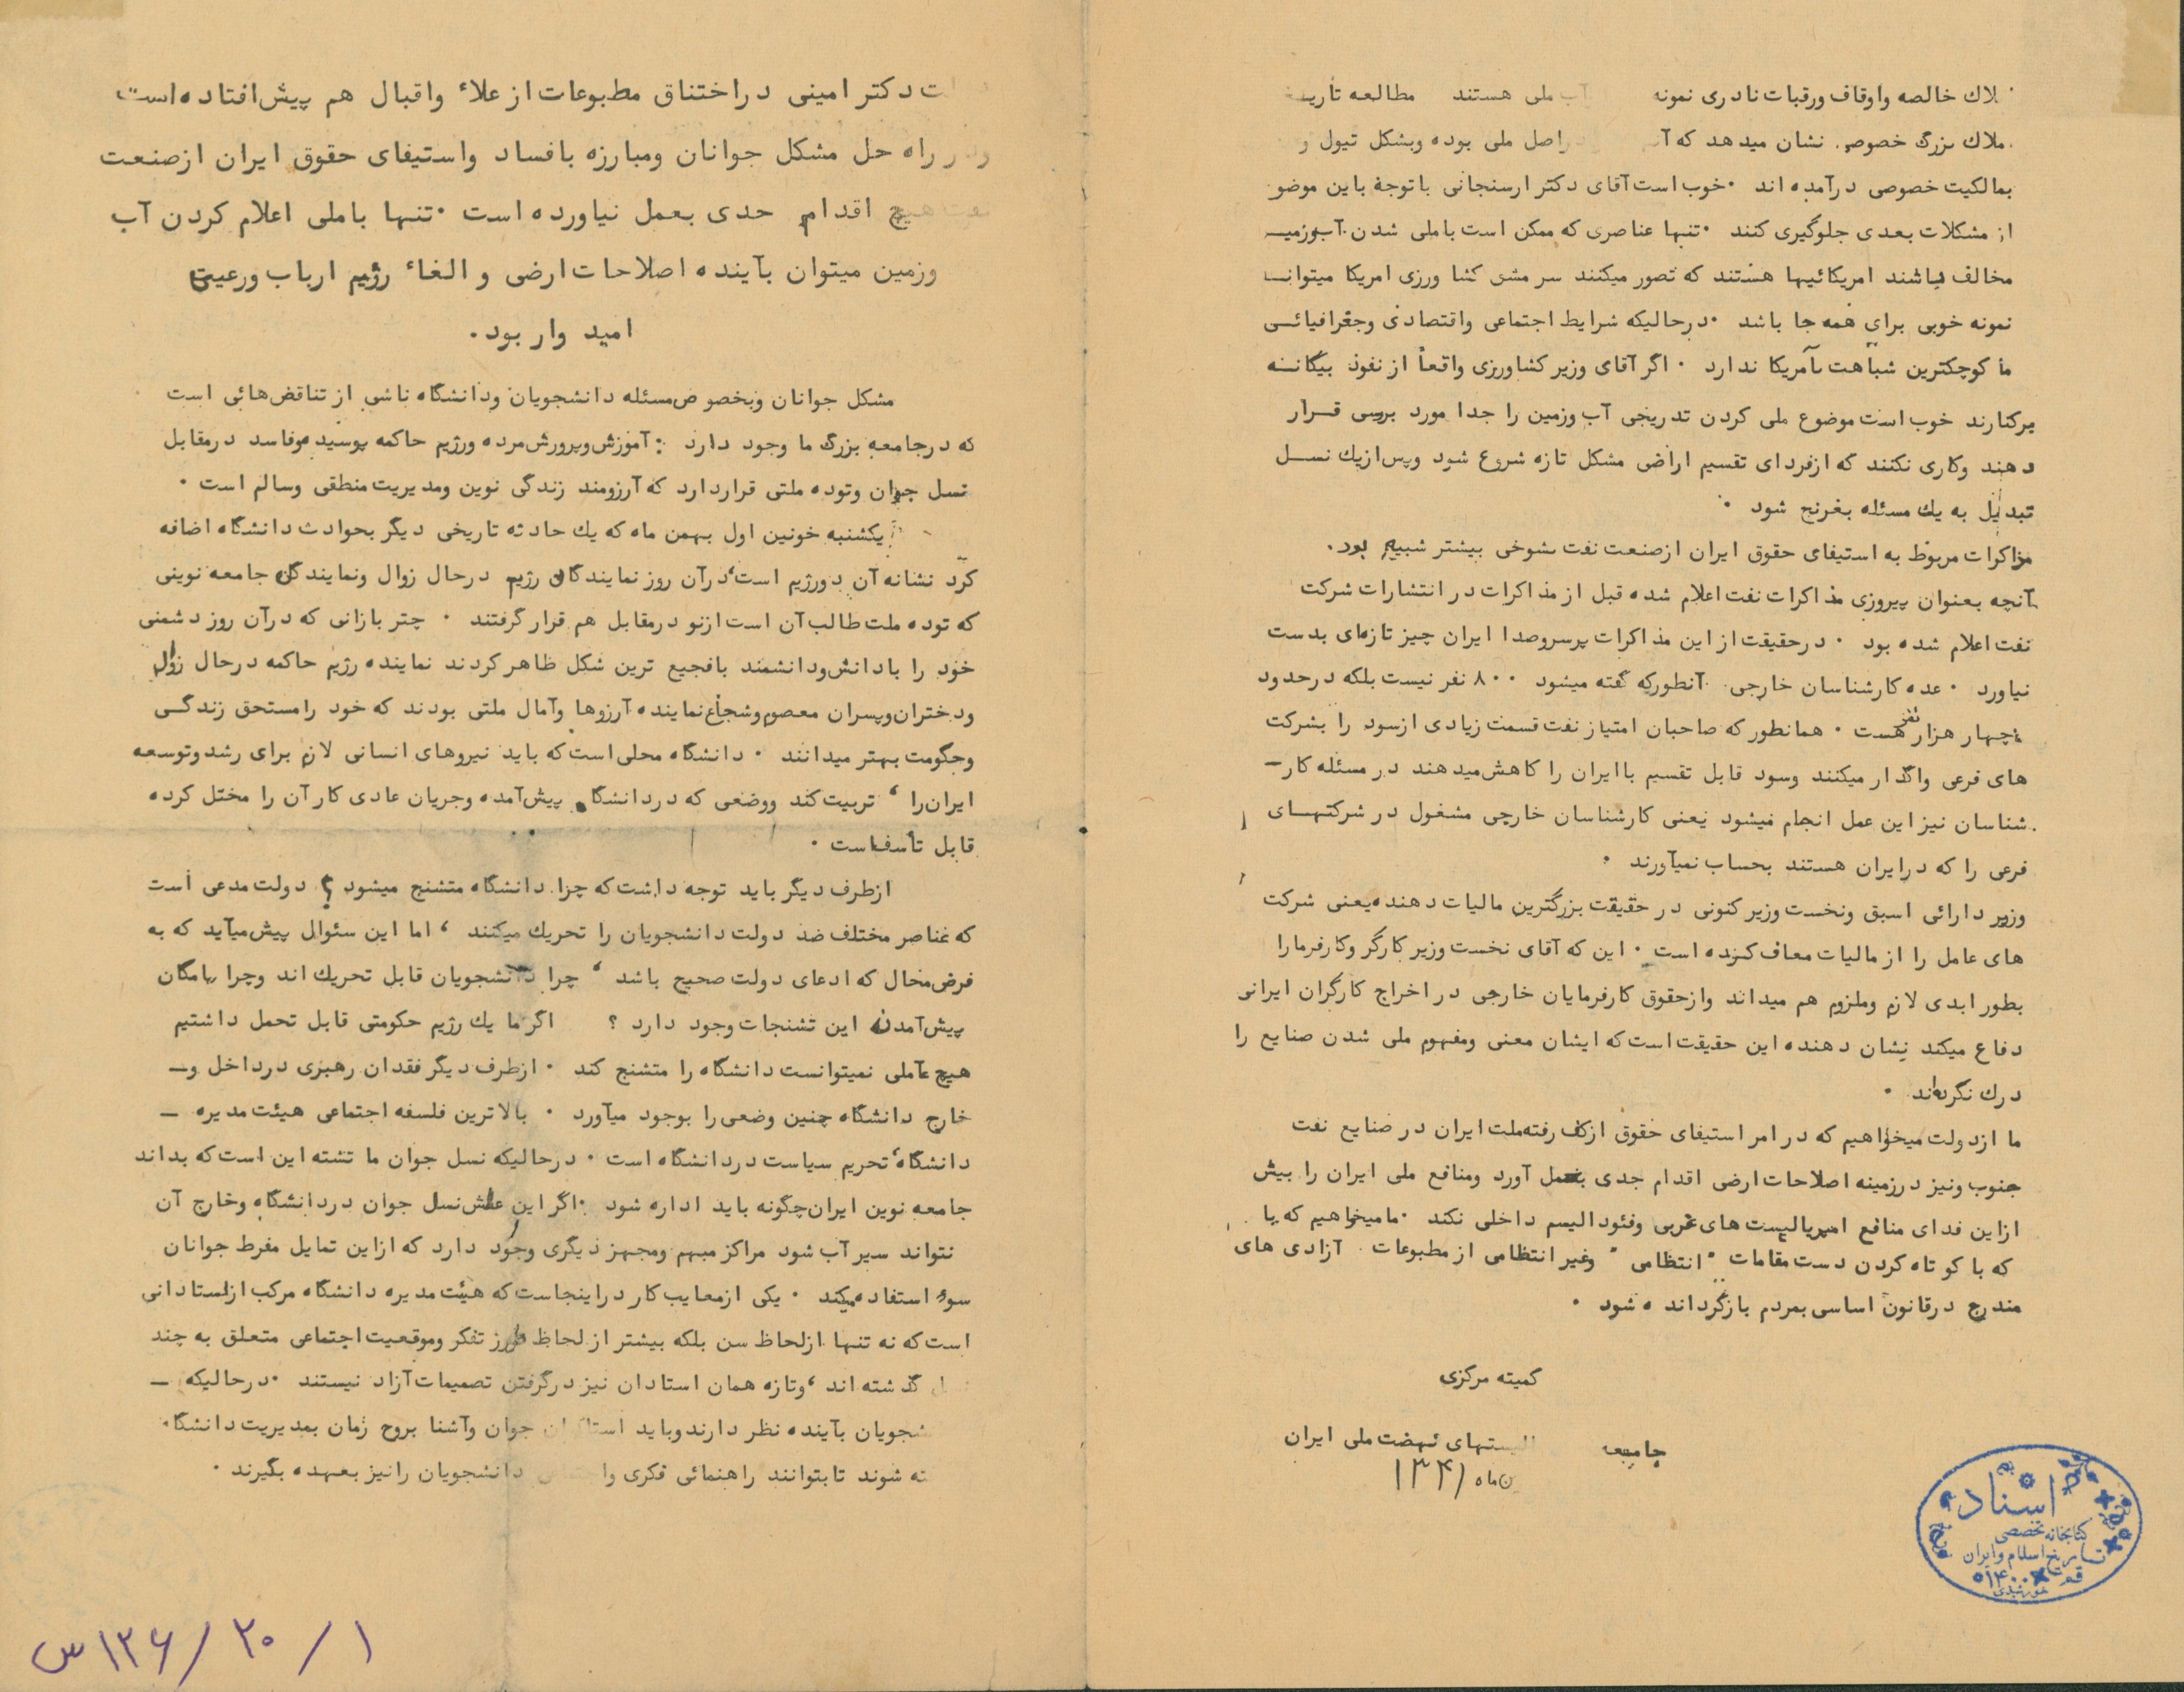 دکتر امینی در اختناق مطبوعات از علاء واقبال هم پیش افتاده است
راه حل مشکل جوانان ومبارزه بافساد واستیفای حقوق ایران ازصنعت
هیچ اقدام جدی بعمل نیاورده است ۰ تنها باملی اعلام کردن آب
وزمین میتوان بآینده اصلاحات ارضی و الغاء رژیم ارباب ورعیتی
امید وار بود.
مشکل جوانان وبخصوص مسئله دانشجویان ودانشگاه ناشی از تناقض هائی است
که درجامعه بزرگ ما وجود دارد : آموزش وپرورش مرده ورژیم حاکمه پوسیده وفاسد درمقابل
نسل جوان وتوده ملتی قراردارد که آرزومند زندگی نوین ومدیریت منطقی وسالم است ۰
یکشنبه خونین اول بهمن ماه که یك حادثه تاریخی دیگر بحوادث دانشگاه اضافه
کرد نشانه آن دورژیم است، درآن روز نمایندگان رژیم درحال زوال ونمایندگان جامعه نوینی
که توده ملت طالب آن است ازنو درمقابل هم قرار گرفتند ۰ چتر بازانی که درآن روز دشمنی
خود را بادانش ودانشمند بافجیع ترین شکل ظاهر کردند نماینده رژیم حاکمه درحال زوال
ودختران وپسران معصوم وشجاع نماینده آرزوها وآمال ملتی بودند که خود رامستحق زندگی
وحکومت بهتر میدانند ۰ دانشگاه محلی است که باید نیروهای انسانی لازم برای رشد وتوسعه
ایران را ، تربیت کند ووضعی که دردانشگاه پیش آمده وجریان عادی کار آن را مختل کرده
قابل تأسف است ۰
ازطرف دیگر باید توجه داشت که چرا دانشگاه متشنج میشود ؟ دولت مدعی است
که عناصر مختلف ضد دولت دانشجویان را تحریك میکنند ، اما این سئوال پیش میآید که به
فرض محال که ادعای دولت صحیح باشد ، چرا دانشجویان قابل تحریك اند وچرا امکان
پیش آمدن این تشنجات وجود دارد ؟ اگر ما یك رژیم حکومتی قابل تحمل داشتیم
هیچ عاملی نمیتوانست دانشگاه را متشنج کند ۰ ازطرف دیگر فقدان رهبری درداخل و ـ
خارج دانشگاه چنین وضعی را بوجود میآورد ۰ بالاترین فلسفه اجتماعی هیئت مدیره ـ
دانشگاه، تحریم سیاست دردانشگاه است ۰ درحالیکه نسل جوان ما تشنه این است که بداند
جامعه نوین ایران چگونه باید اداره شود ۰ اگر این عطش نسل جوان دردانشگاه وخارج آن
نتواند سیر آب شود مراکز مبهم ومجهز دیگری وجود دارد که ازاین تمایل مفرط جوانان
سوء استفاده میکند ۰ یکی ازمعایب کار دراینجاست که هیئت مدیره دانشگاه مرکب ازاستادانی
است که نه تنها ازلحاظ سن بلکه بیشتر از لحاظ طرز تفکر وموقعیت اجتماعی متعلق به چند
گذشته اند ، وتازه همان استادان نیز درگرفتن تصمیمات آزاد نیستند ۰ درحالیکه ـ
بآینده نظر دارند وباید جوان وآشنا بروح زمان بمدیریت دانشگاه
شوند تا بتوانند راهنمائی فکری دانشجویان رانیز بعهده بگیرند ۰
خالصه واوقاف ورقبات نادری نمونه ملی هستند مطالعه
بزرگ خصوصی نشان میدهد که ملی بوده وبشکل تیول و
بمالکیت خصوصی درآمده اند ۰ خوب است آقای دکتر ارسنجانی باتوجه باین
از مشکلات بعدی جلوگیری کنند ۰ تنها عناصری که ممکن است باملی شدن آب وزمین
مخالف باشند امریکائیها هستند که تصور میکنند سر مشق کشا ورزی امریکا میتواند
نمونه خوبی برای همه جا باشد ۰ درحالیکه شرایط اجتماعی واقتصادی وجغرافیائی
ما کوچکترین شباهت بآمریکا ندارد ۰ اگر آقای وزیر کشاورزی واقعاً از نفوذ بیگانه
برکنارند خوب است موضوع ملی کردن تدریجی آب وزمین را جدا مورد بررسی قرار
دهند وکاری نکنند که ازفردای تقسیم اراضی مشکل تازه شروع شود وپس ازیك نسل
تبدیل به یك مسئله بغرنج شود ۰
مذاکرات مربوط به استیفای حقوق ایران ازصنعت نفت بشوخی بیشتر شبیه بود.
آنچه بعنوان پیروزی مذاکرات نفت اعلام شده قبل از مذاکرات در انتشارات شرکت
نفت اعلام شده بود ۰ درحقیقت از این مذاکرات پرسروصدا ایران چیز تازه‌ای بدست
نیاورد ۰ عده کارشناسان خارجی آنطورکه گفته میشود ۸۰۰ نفر نیست بلکه درحدود
چهار هزار نفر هست ۰ همانطور که صاحبان امتیاز نفت قسمت زیادی ازسود را بشرکت
های فرعی واگذار میکنند وسود قابل تقسیم باایران را کاهش میدهند در مسئله کار ـ
شناسان نیز این عمل انجام میشود یعنی کارشناسان خارجی مشغول در شرکتهای
فرعی را که درایران هستند بحساب نمیآورند ۰
وزیر دارائی اسبق ونخست وزیر کنونی در حقیقت بزرگترین مالیات دهنده یعنی شرکت
های عامل را از مالیات معاف کرده است ۰ این که آقای نخست وزیر کارگر وکارفرما را
بطور ابدی لازم وملزوم هم میداند وازحقوق کارفرمایان خارجی در اخراج کارگران ایرانی
دفاع میکند نشان دهنده این حقیقت است که ایشان معنی ومفهوم ملی شدن صنایع را
درك نکرده‌اند ۰
ما ازدولت میخواهیم که در امر استیفای حقوق ازکف رفته ملت ایران در صنایع نفت
جنوب ونیز درزمینه اصلاحات ارضی اقدام جدی بعمل آورد ومنافع ملی ایران را بیش
ازاین فدای منافع امپریالیست های غربی وفئودالیسم داخلی نکند ۰ مامیخواهیم که با
که با کوتاه کردن دست مقامات " انتظامی " وغیر انتظامی از مطبوعات آزادی های
مندرج درقانون اساسی بمردم بازگردانده شود ۰
کمیته مرکزی
جامعه نهضت ملی ایران
ماه ۱۳۴۱
اسناد
کتابخانه تخصصی
تاریخ اسلام وایران
قم
۱۴۰۰
خورشیدی
۱ / ۲۰ / ۱۲۶ س